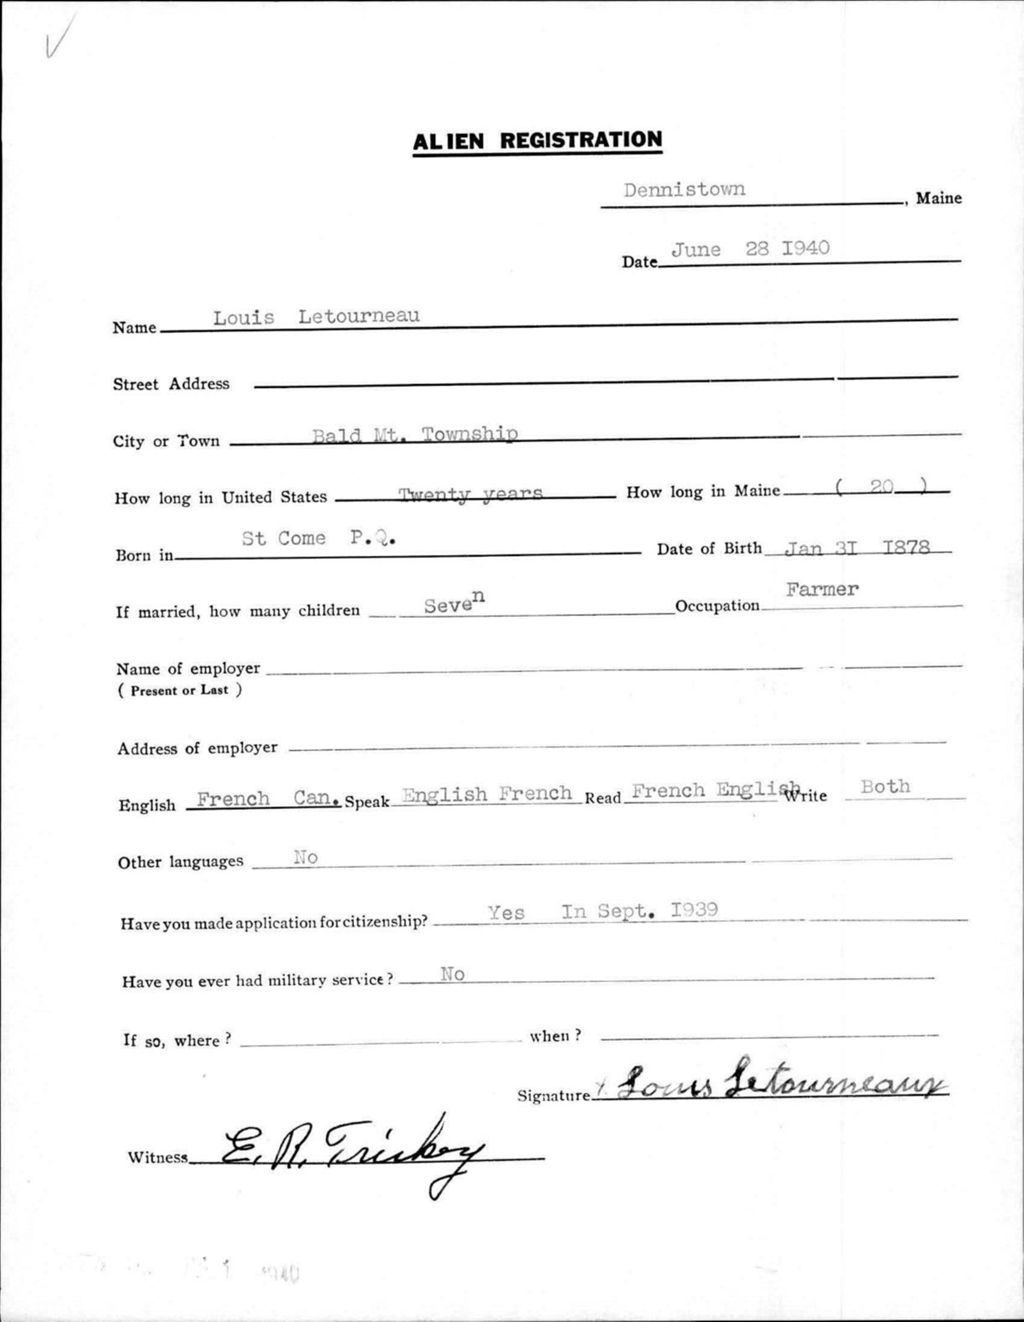 ALIEN REGISTRATION
Dennistown, Maine
Date June 28 I940
Name Louis Letourneau
Street Address
City or Town Bald Mt. Township
How long in United States Twenty years How long in Maine ( 20 )
Born in St Come P.Q. Date of Birth Jan 3I I878
If married, how many children Seven Occupation Farmer
Name of employer
( Present or Last )
Address of employer
English French Can. Speak English French Read French English Write Both
Other languages No
Have you made application for citizenship? Yes In Sept. I939
Have you ever had military service? No
If so, where? when?
Signature x Louis Letourneaux
Witness E. R. Triskey
1940